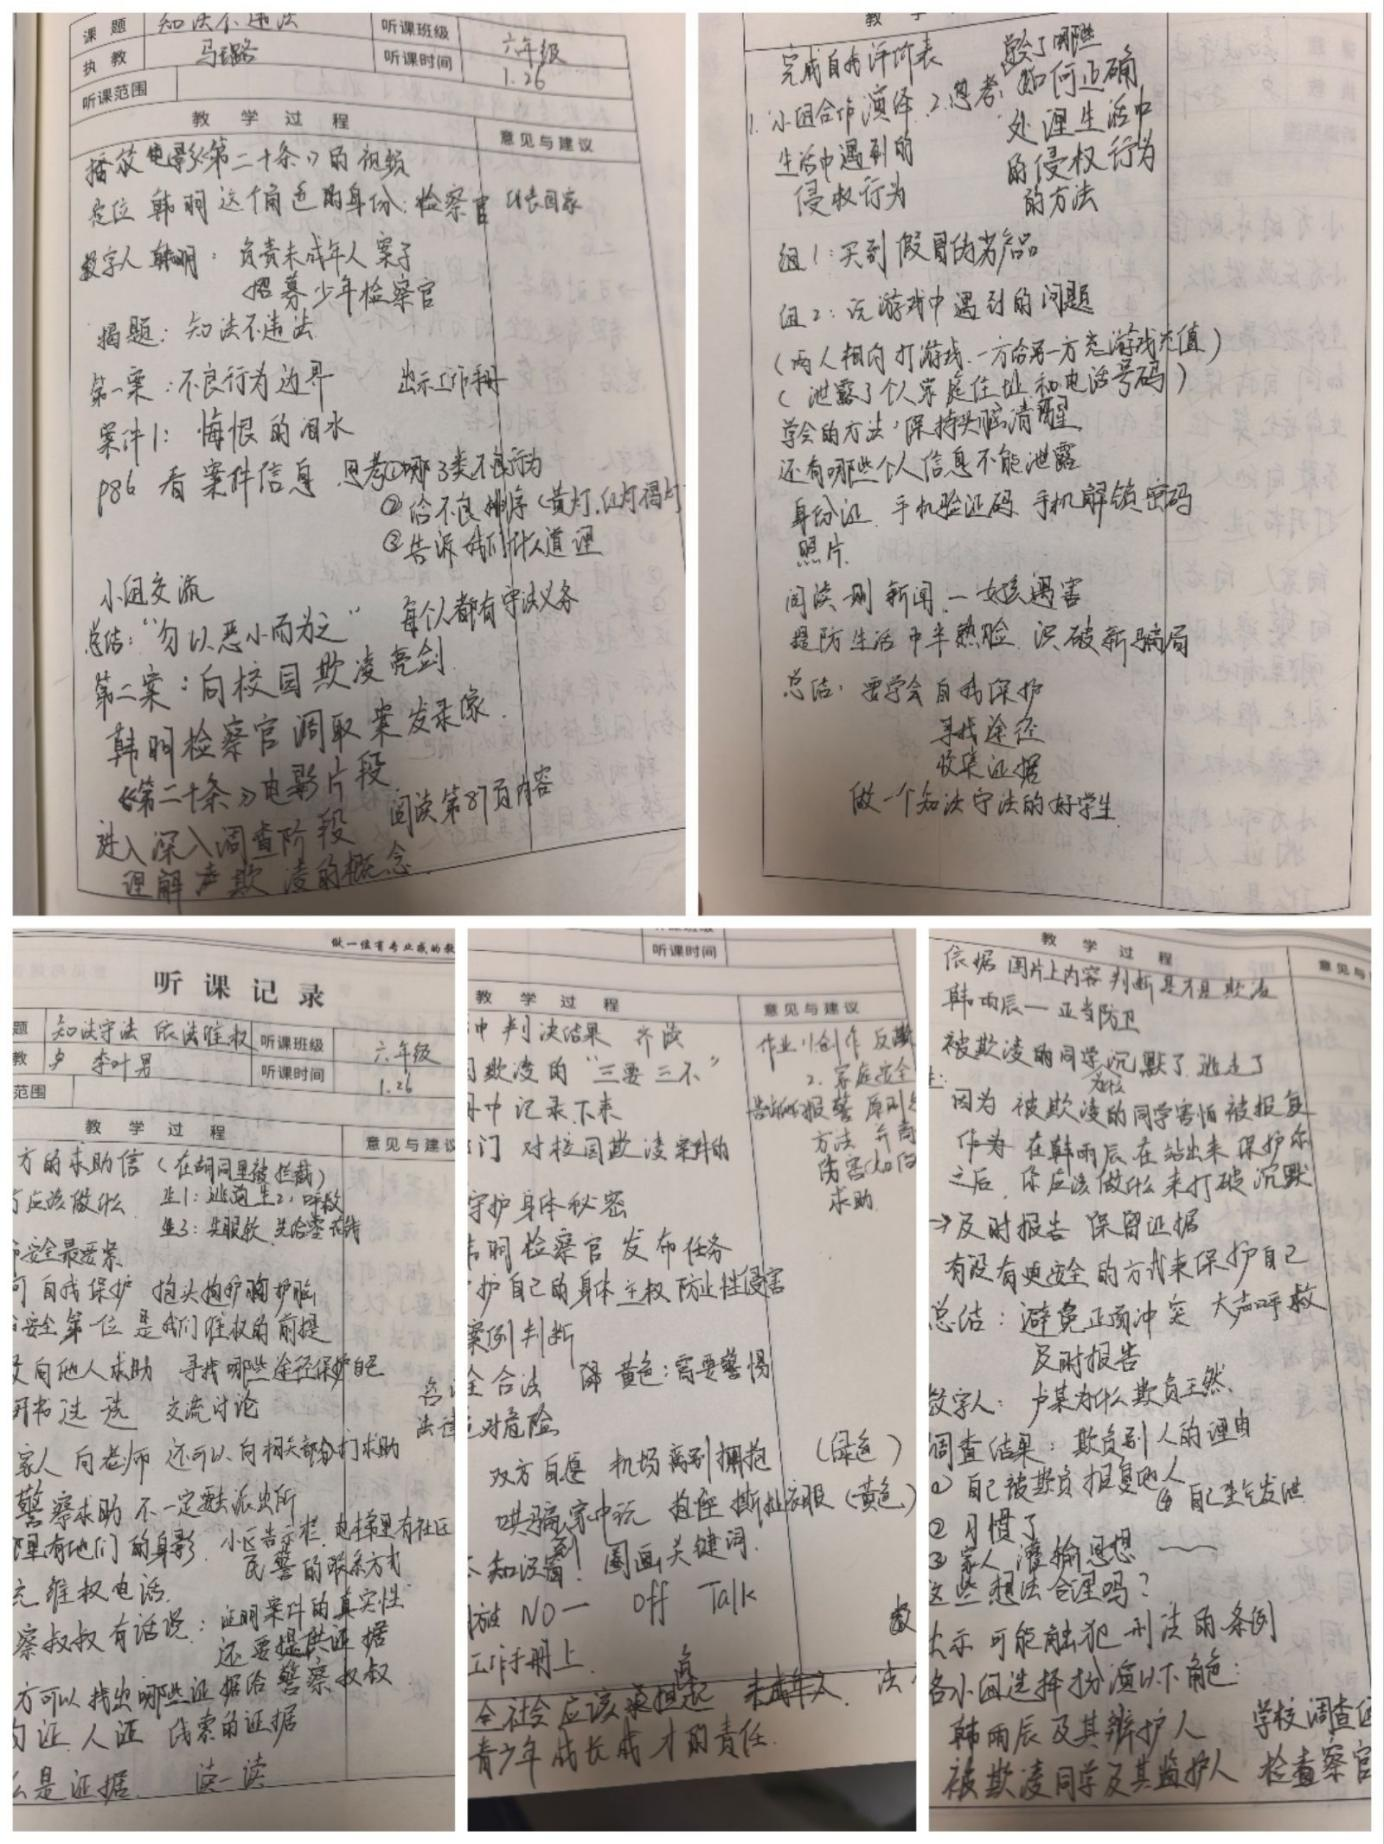 课题 知法不违法 听课班级 六年级
执教 马璐 听课时间 1.26
听课范围
教学过程 意见与建议
播放电影《第二十条》的视频
定位 韩明这个角色的身份：检察官 代表国家
数字人韩明：负责未成年人案子
招募少年检察官
揭题：知法不违法
第一案：不良行为边界 出示工作手册
案件1：悔恨的泪水
P86 看案件信息 思考①哪3类不良行为
②给不良排序（黄灯、红灯
③告诉我们什么道理
小组交流
总结：“勿以恶小而为之” 每个人都有守法义务
第二案：向校园欺凌亮剑
韩明检察官调取案发录像
《第二十条》电影片段
进入深入调查阶段 阅读第87页内容
理解 欺凌的概念
教学
完成自我评价表
1.小组合作演绎 2.思考： 如何正确
生活中遇到的 处理生活中
侵权行为 的侵权行为
的方法
组1：买到假冒伪劣产品
组2：玩游戏中遇到的问题
（两人相约打游戏，一方给另一方 游戏充值）
（泄露了个人家庭住址和电话号码）
学会的方法，保持头脑清醒
还有哪些个人信息不能泄露
身份证 手机验证码 手机解锁密码
照片
阅读 则新闻，一女孩遇害
提防生活中半熟脸 识破新骗局
总结：要学会自我保护
寻找途径
收集证据
做一个知法守法的好学生
做一位有专业感的教
听课记录
题 知法守法 依法维权 听课班级 六年级
教 卢 李叶男 听课时间 1.26
范围
教学过程 意见与建议
方的求助信（在胡同里被拦截）
应该做什么 生1：逃 生2：呼救
生3：先服软 先给 钱
安全最要紧
自我保护 抱头 护胸护脸
安全第一位 是我们维权的前提
向他人求助 寻找哪些途径保护自己
书选一选 交流讨论
家人 向老师 还可以向相关部分打求助
警察求助 不一定要去派出所
里有他们的身影 小区告示栏、电梯里有社区
民警的联系方式
充 维权电话
察叔叔有话说：证明案件的真实性
还要提供证据
方可以找出哪些证据给警察叔叔
证 人证 线索的证据
么是证据 读一读
听课时间
教学过程 意见与建议
中判决结果 齐读 作业 1.创作 反欺
欺凌的“三要三不” 2.家庭安全
中记录下来 报警 原则
门 对校园欺凌案件的 方法
伤害
守护身体秘密 求助
韩明检察官发布任务
护自己的身体主权 防止性侵害
案例判断
全 合法 黄色：需要警惕
对危险
双方自愿 机场离别拥抱 （绿色）
哄骗到家中玩 撕扯衣服（黄色）
圈画关键词
NO一 Off Talk
工作手册上
全社会应该承担起 未成年人 法
青少年成长成才的责任
教学过程 意见与
依据图片上内容 判断是不是欺凌
韩雨辰一正当防卫
被欺凌的同学沉默了 逃走了
因为 被欺凌的同学害怕被报复
作为 在韩雨辰在站出来保护你
之后，你应该做什么来打破沉默
→及时报告 保留证据
有没有更安全的方式来保护自己
总结：避免正面冲突 大声呼救
及时报告
数字人：卢某为什么欺负王然
调查结果：欺负别人的理由
①自己被欺负报复他人
④自己生气发泄
②习惯了
③家人灌输思想
这些想法合理吗？
出示可能触犯刑法的条例
各小组选择扮演以下角色：
韩雨辰及其辩护人 学校调查
被欺凌同学及其监护人 检察官